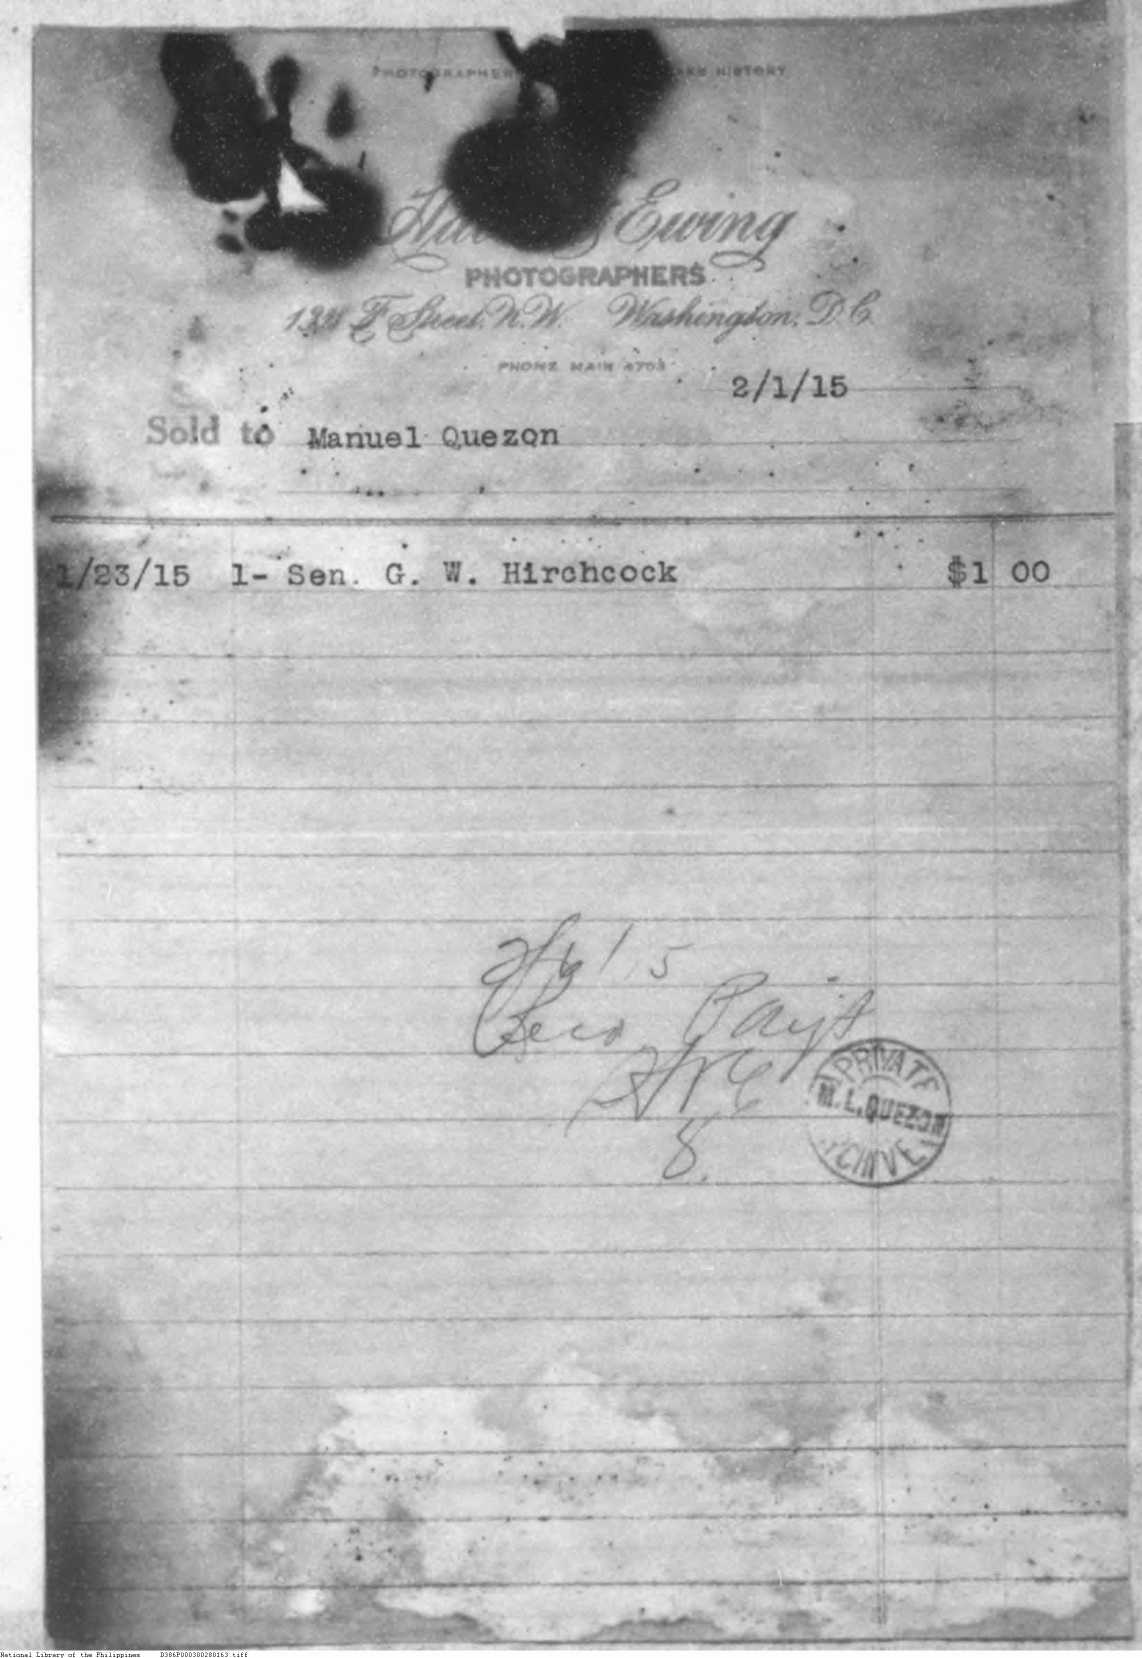 PHOTOGRAPHER HISTORY
Ewing
PHOTOGRAPHERS
F Street, N.W. Washington, D.C.
PHONE MAIN 4703
2/1/15
Sold to Manuel Quezon
1/23/15 1- Sen. G. W. Hirchcock $1 00
2/6/15
8.
PRIVATE
M. L. QUEZON
National Library of the Philippines D386P000300280163.tiff